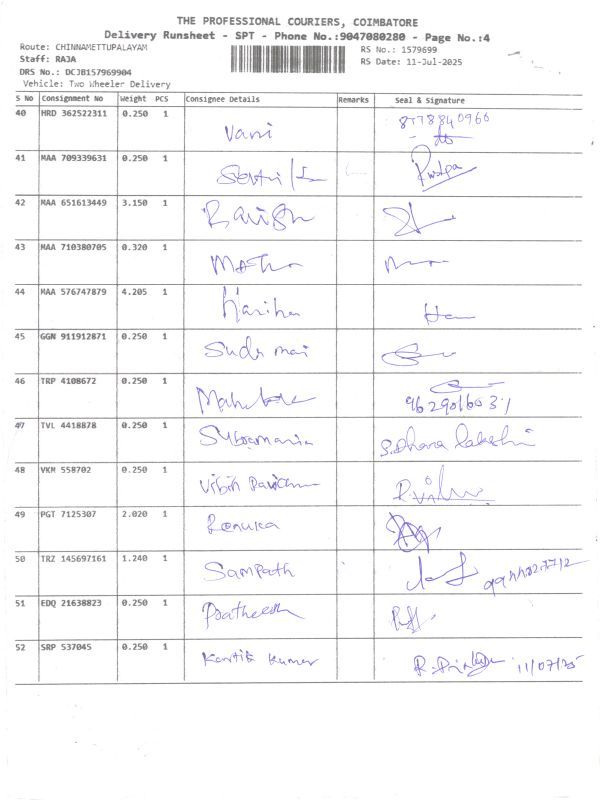 THE PROFESSIONAL COURIERS, COIMBATORE
Delivery Runsheet - SPT - Phone No.:9047080280 - Page No.:4
Route: CHINNAMETTUPALAYAM
Staff: RAJA
DRS No.: DCJB157969904
Vehicle: Two Wheeler Delivery
RS No.: 1579699
RS Date: 11-Jul-2025
S No Consignment No Weight PCS Consignee Details Remarks Seal & Signature
40 HRD 362522311 0.250 1 Vani 8778840966
41 MAA 709339631 0.250 1
42 MAA 651613449 3.150 1
43 MAA 710380705 0.320 1
44 MAA 576747879 4.205 1
45 GGN 911912871 0.250 1
46 TRP 4108672 0.250 1
47 TVL 4418878 0.250 1
48 VKM 558702 0.250 1
49 PGT 7125307 2.020 1 Renuka
50 TRZ 145697161 1.240 1 Sampath
51 EDQ 21638823 0.250 1 Pratheesh
52 SRP 537045 0.250 1 Kartik Kumar 11/07/25